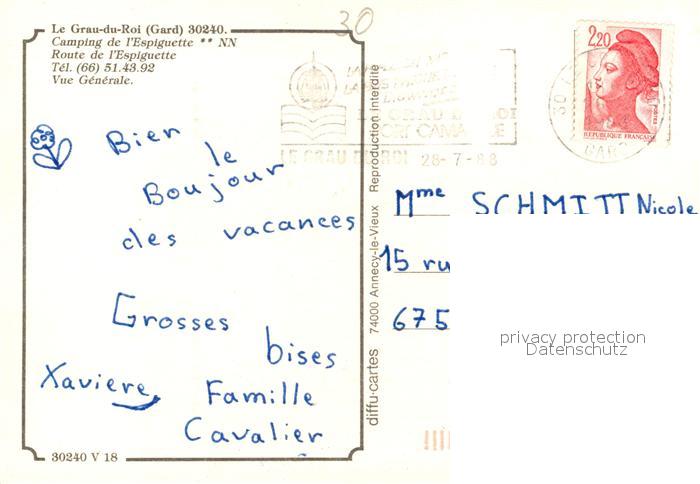 30
Le Grau-du-Roi (Gard) 30240.
Camping de l'Espiguette ** NN
Route de l'Espiguette
Tél. (66) 51.43.92
Vue Générale.
Bien
le
Boujour
des vacances
Grosses
bises
Xaviere, Famille
Cavalier
30240 V 18
diffu-cartes 74000 Annecy-le-Vieux Reproduction interdite
LE GRAU DU ROI
PORT CAMARGUE
LE GRAU DU ROI 28-7-88
2,20
POSTES
REPUBLIQUE FRANÇAISE
30
GARD
Mme SCHMITT Nicole
15 ru
675
privacy protection
Datenschutz